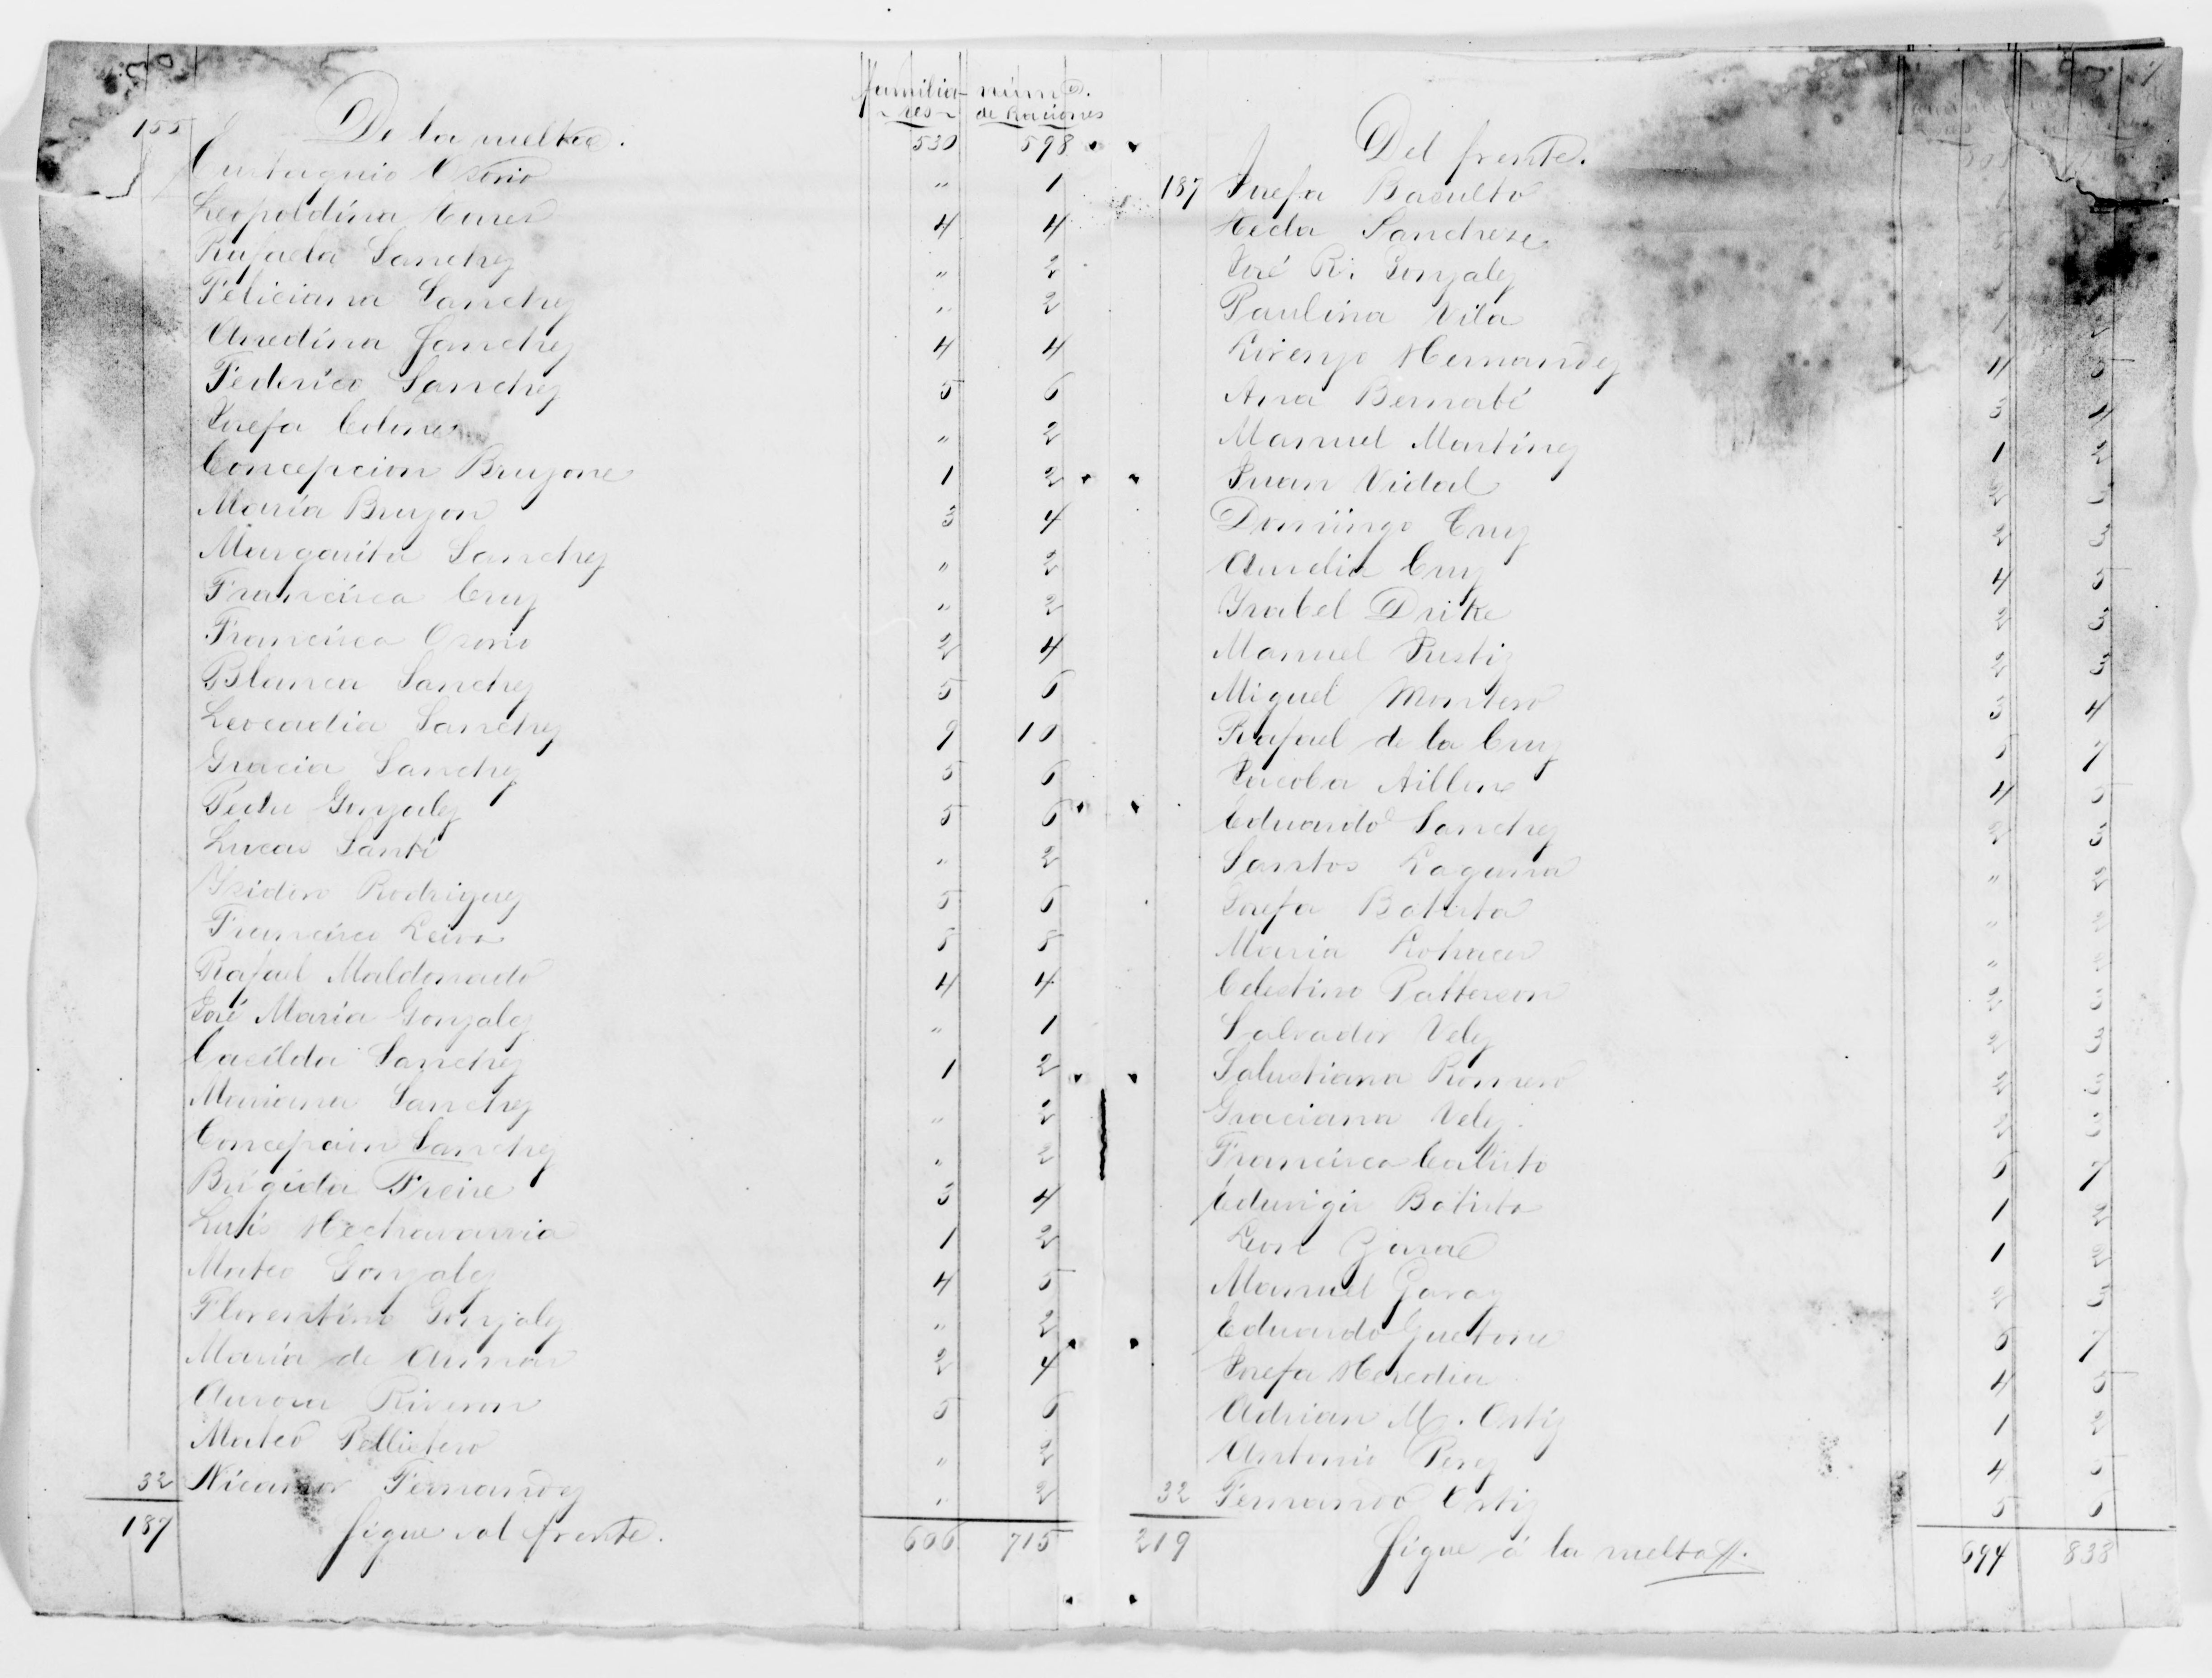 familia- núm.o
res de Raciones
155 De la vuelta. 530 598
Eustaquio Osorio " 1
Leopoldina 4 4
Rufaela Sanchez " 2
Feliciana Sanchez " 2
Sanchez 4 4
Federico Sanchez 5 6
Josefa " 2
Concepcion Bruzone 1 2
María Bruzon 3 4
Margarita Sanchez " 2
Francisca Cruz " 2
Francisca Osorio 2 4
Blanca Sanchez 5 6
Leocadia Sanchez 9 10
Gracia Sanchez 5 6
Pedro Gonzalez 5 6
Lucas Santí " 2
Isidoro Rodriguez 5 6
Francisco Leiva 8 8
Rafael Maldonado 4 4
José María Gonzalez " 1
Casilda Sanchez 1 2
Mariana Sanchez " 2
Concepcion Sanchez " 2
Brígida Freire 3 4
Luis Hechavarria 1 2
Mateo Gonzalez 4 5
Florentino Gonzalez " 2
María de Armas 2 4
Aurora Riveron 5 6
Mateo Pellicier " 2
32 Nicanor Fernandez " 2
187 Sigue al frente. 606 715
Del frente.
187 Josefa Basulto
Sanchez
José R. Gonzalez
Paulina Vila
Lorenzo Hernandez 4 5
Ana Bernabé 3 4
Manuel Martinez 1 2
Juan Vidal 2 3
Domingo Cruz 2 3
Aurelia Cruz 4 5
Ysabel Drike 2 3
Manuel Justiz 2 3
Miguel Montero 3 4
Rafael de la Cruz 6 7
Jacoba Aillon 4 5
Eduardo Sanchez 2 3
Santos Laguna " 2
Josefa Batista " 2
Maria "
Celestino Patterson 2 3
Salvador Velez 2 3
Salustiana Romero 2 3
Graciana Velez 2 3
Francisca Calisto 6 7
Eduvigis Batista 1 2
Leon 1 2
Manuel Garay 2 3
Eduardo 6 7
Josefa Heredia 4 5
Adrian M. Ortiz 1 2
Antonio Perez 4 5
32 Fernando Ortiz 5 6
219 Sigue á la vuelta. 694 833